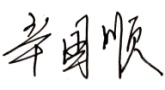 辛国顺